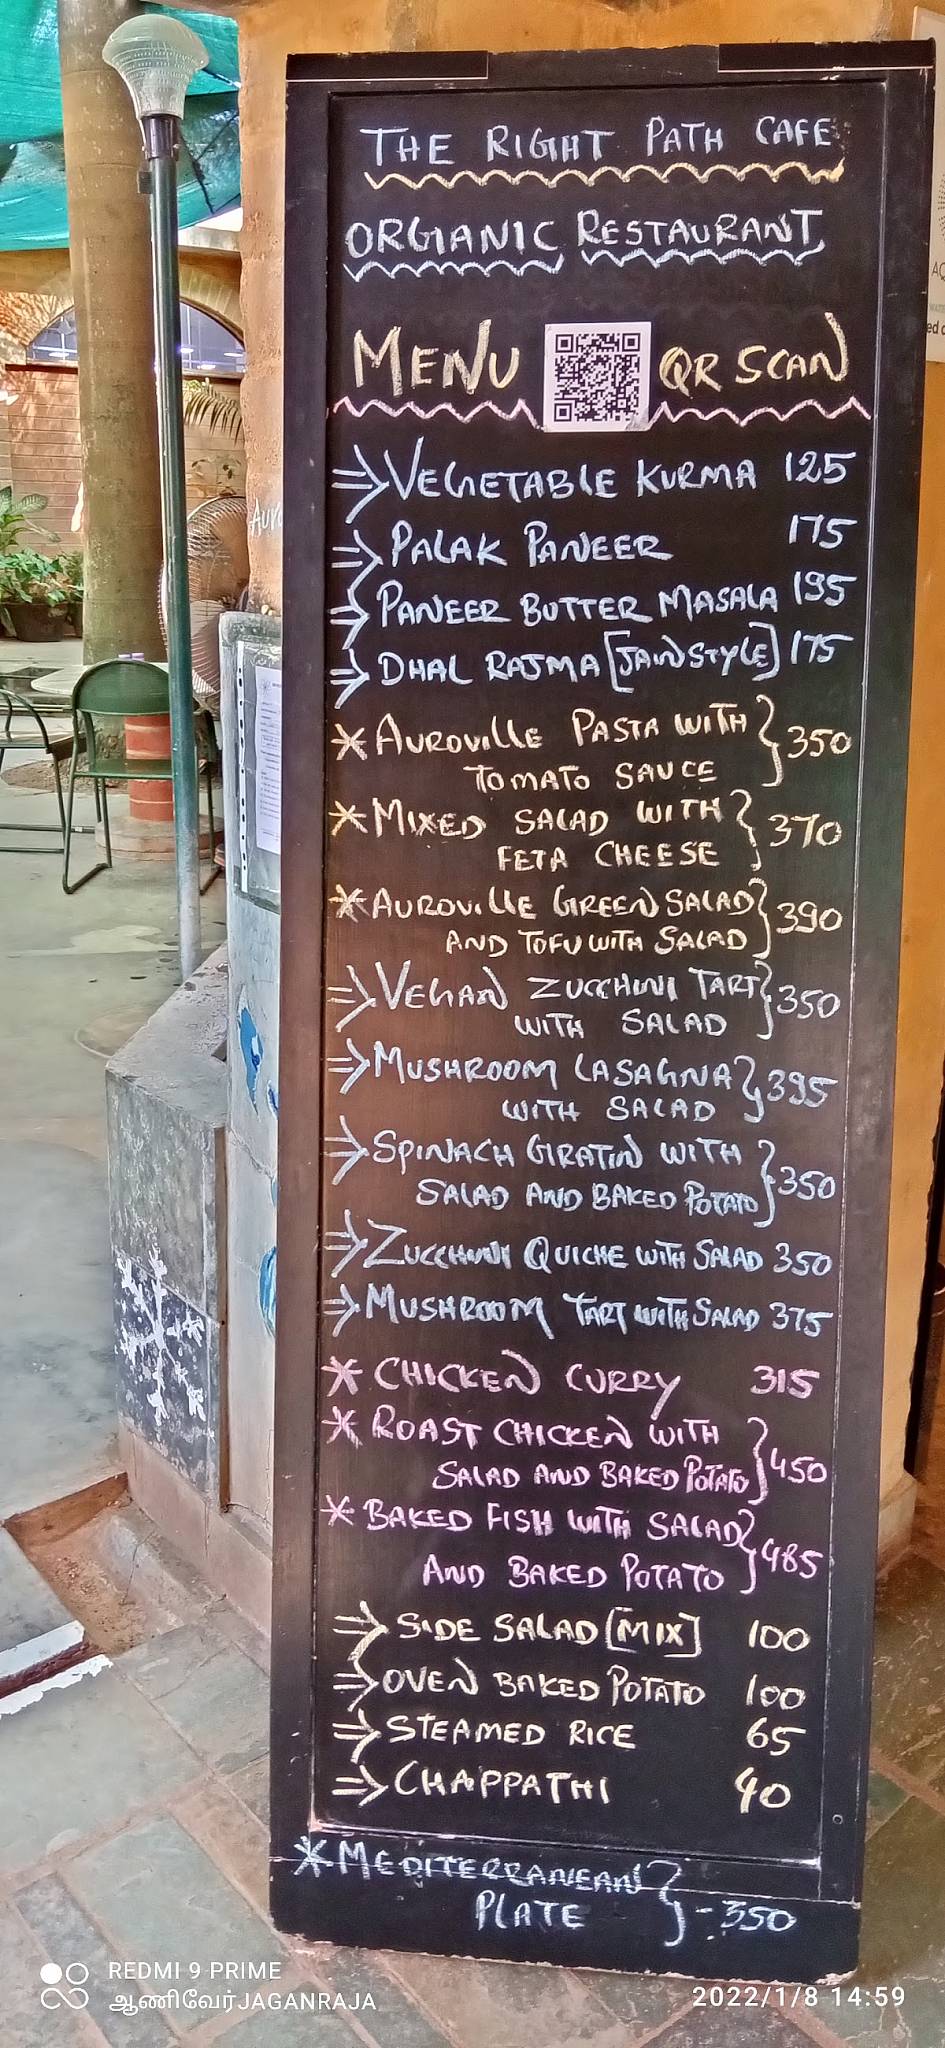 THE RIGHT PATH CAFE
ORGANIC RESTAURANT
MENU QR SCAN
⇒ VEGETABLE KURMA 125
⇒ PALAK PANEER 175
⇒ PANEER BUTTER MASALA 195
⇒ DHAL RAJMA [JAIN STYLE] 175
* AUROVILLE PASTA WITH
TOMATO SAUCE } 350
* MIXED SALAD WITH
FETA CHEESE } 370
* AUROVILLE GREEN SALAD
AND TOFU WITH SALAD } 390
⇒ VEGAN ZUCCHINI TART
WITH SALAD } 350
⇒ MUSHROOM LASAGNA
WITH SALAD } 395
⇒ SPINACH GRATIN WITH
SALAD AND BAKED POTATO } 350
⇒ ZUCCHINI QUICHE WITH SALAD 350
⇒ MUSHROOM TART WITH SALAD 375
* CHICKEN CURRY 315
* ROAST CHICKEN WITH
SALAD AND BAKED POTATO } 450
* BAKED FISH WITH SALAD
AND BAKED POTATO } 485
⇒ SIDE SALAD [MIX] 100
⇒ OVEN BAKED POTATO 100
⇒ STEAMED RICE 65
⇒ CHAPPATHI 40
* MEDITERRANEAN
PLATE } - 350
REDMI 9 PRIME
ஆணிவேர்JAGANRAJA
2022/1/8 14:59